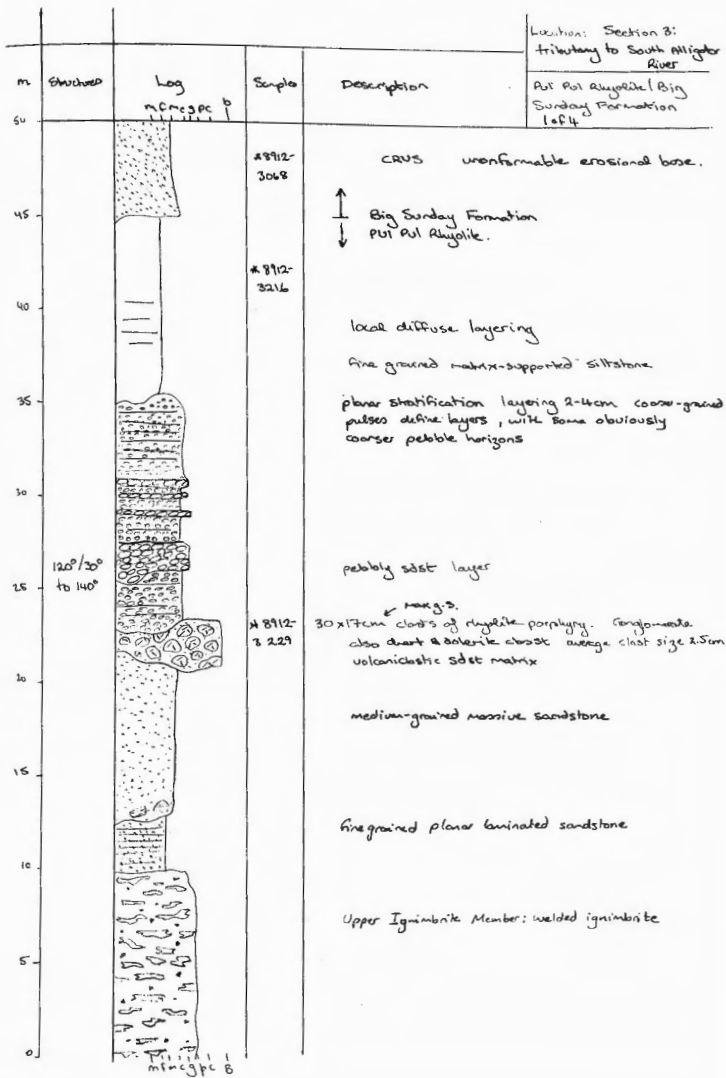 Location: Section 3:
tributary to South Alligator
River
Pul Pul Rhyolite/Big
Sunday Formation
1 of 4
m
Structures
Log
Samples
Description
m f m c g p c b
50
*8912-
3068
CRVS unconformable erosional base.
45
Big Sunday Formation
Pul Pul Rhyolite.
*8912-
3216
40
local diffuse layering
fine grained matrix-supported siltstone
35
planar stratification layering 2-4cm coarser-grained
pulses define layers, with some obviously
coarser pebble horizons
30
120°/30°
to 140°
pebbly sdst layer
25
max g.s.
*8912-
3229
30x17cm clasts of rhyolite porphyry. Conglomerate
also chert & dolerite clasts average clast size 2.5cm
volcaniclastic sdst matrix
20
medium-grained massive sandstone
15
fine grained planar laminated sandstone
10
Upper Ignimbrite Member: welded ignimbrite
5
0
m f m c g p c B